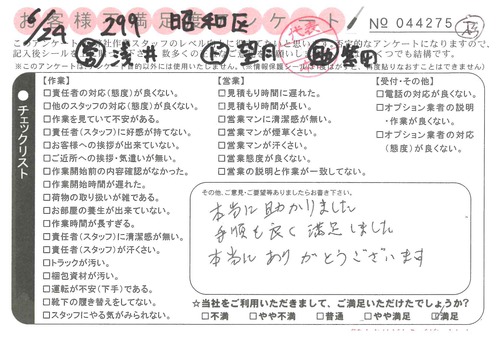 お客様満足アンケート
6/29
299
昭和区
代表
No 044275
このアンケート
入後シールを
営 浅井
助 柴田
チェックリスト
【作業】
□責任者の対応(態度)が良くない。
□他のスタッフの対応(態度)が良くない。
□作業を見ていて不安がある。
□責任者(スタッフ)に好感が持てない。
□お客様への挨拶が出来ていない。
□ご近所への挨拶・気遣いが無い。
□作業開始前の内容確認がなかった。
□作業開始時間が遅れた。
□荷物の取り扱いが雑である。
□お部屋の養生が出来ていない。
□作業時間が長すぎる。
□責任者(スタッフ)に清潔感が無い。
□責任者(スタッフ)が汗くさい。
□トラックが汚い。
□梱包資材が汚い。
□運転が不安(下手)である。
□靴下の履き替えをしてない。
□スタッフにやる気がみられない。
【営業】
□見積もり時間に遅れた。
□見積もり時間が長い。
□営業マンに清潔感が無い。
□営業マンが煙草くさい。
□営業マンが汗くさい。
□営業態度が良くない。
□営業の説明と作業が一致してない。
【受付・その他】
□電話の対応が良くない。
□オプション業者の説明
・作業が良くない。
□オプション業者の対応
(態度)が良くない。
その他、ご意見・ご要望等ありましたらお書き下さい。
本当に助かりました
手順も良く満足しました
本当にありがとうございます
☆当社をご利用いただきまして、ご満足いただけたでしょうか?
□不満 □やや不満 □普通 □やや満足 ☑満足